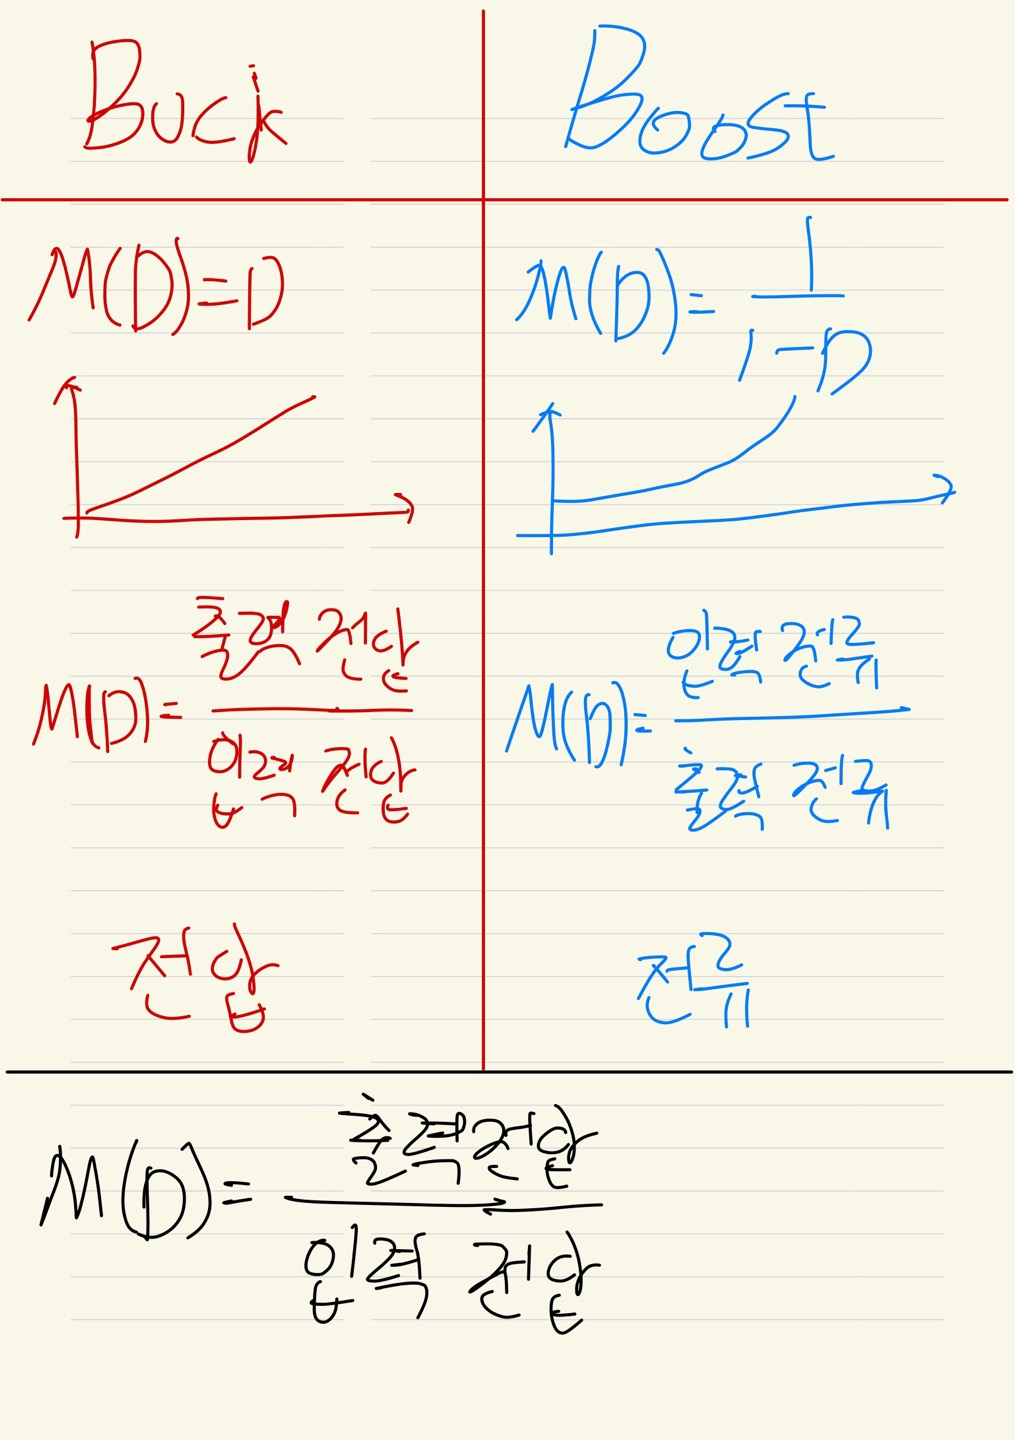 Buck
Boost
M(D)=D
M(D)=1/1-D
M(D)=출력 전압/입력 전압
M(D)=입력 전류/출력 전류
전압
전류
M(D)=출력전압/입력 전압